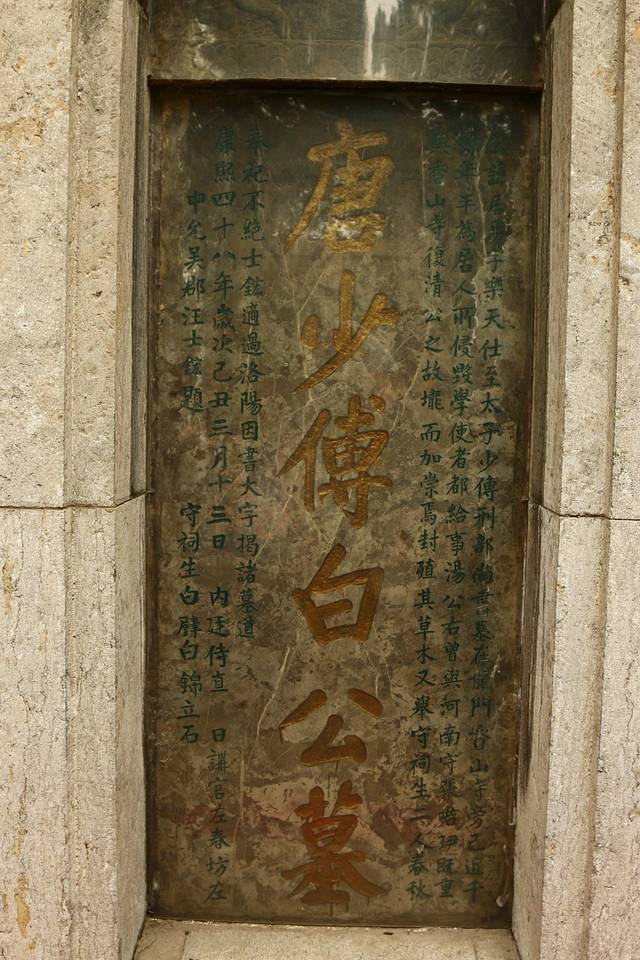 公諱居易字樂天仕至太子少傅刑部尚書墓在龍門香山寺旁已近千
年半為居人所侵毀學使者都給事湯公右曾與河南守張
香山寺復清公之故壠而加崇焉封殖其草木又舉守祠生二人春秋
唐少傅白公墓
奉祀不絕士鋐適過洛陽因書大字揭諸墓道
康熙四十八年歲次己丑三月十三日 內廷侍直 日講官左春坊左
中允吳郡汪士鋐題 守祠生白 白錦立石